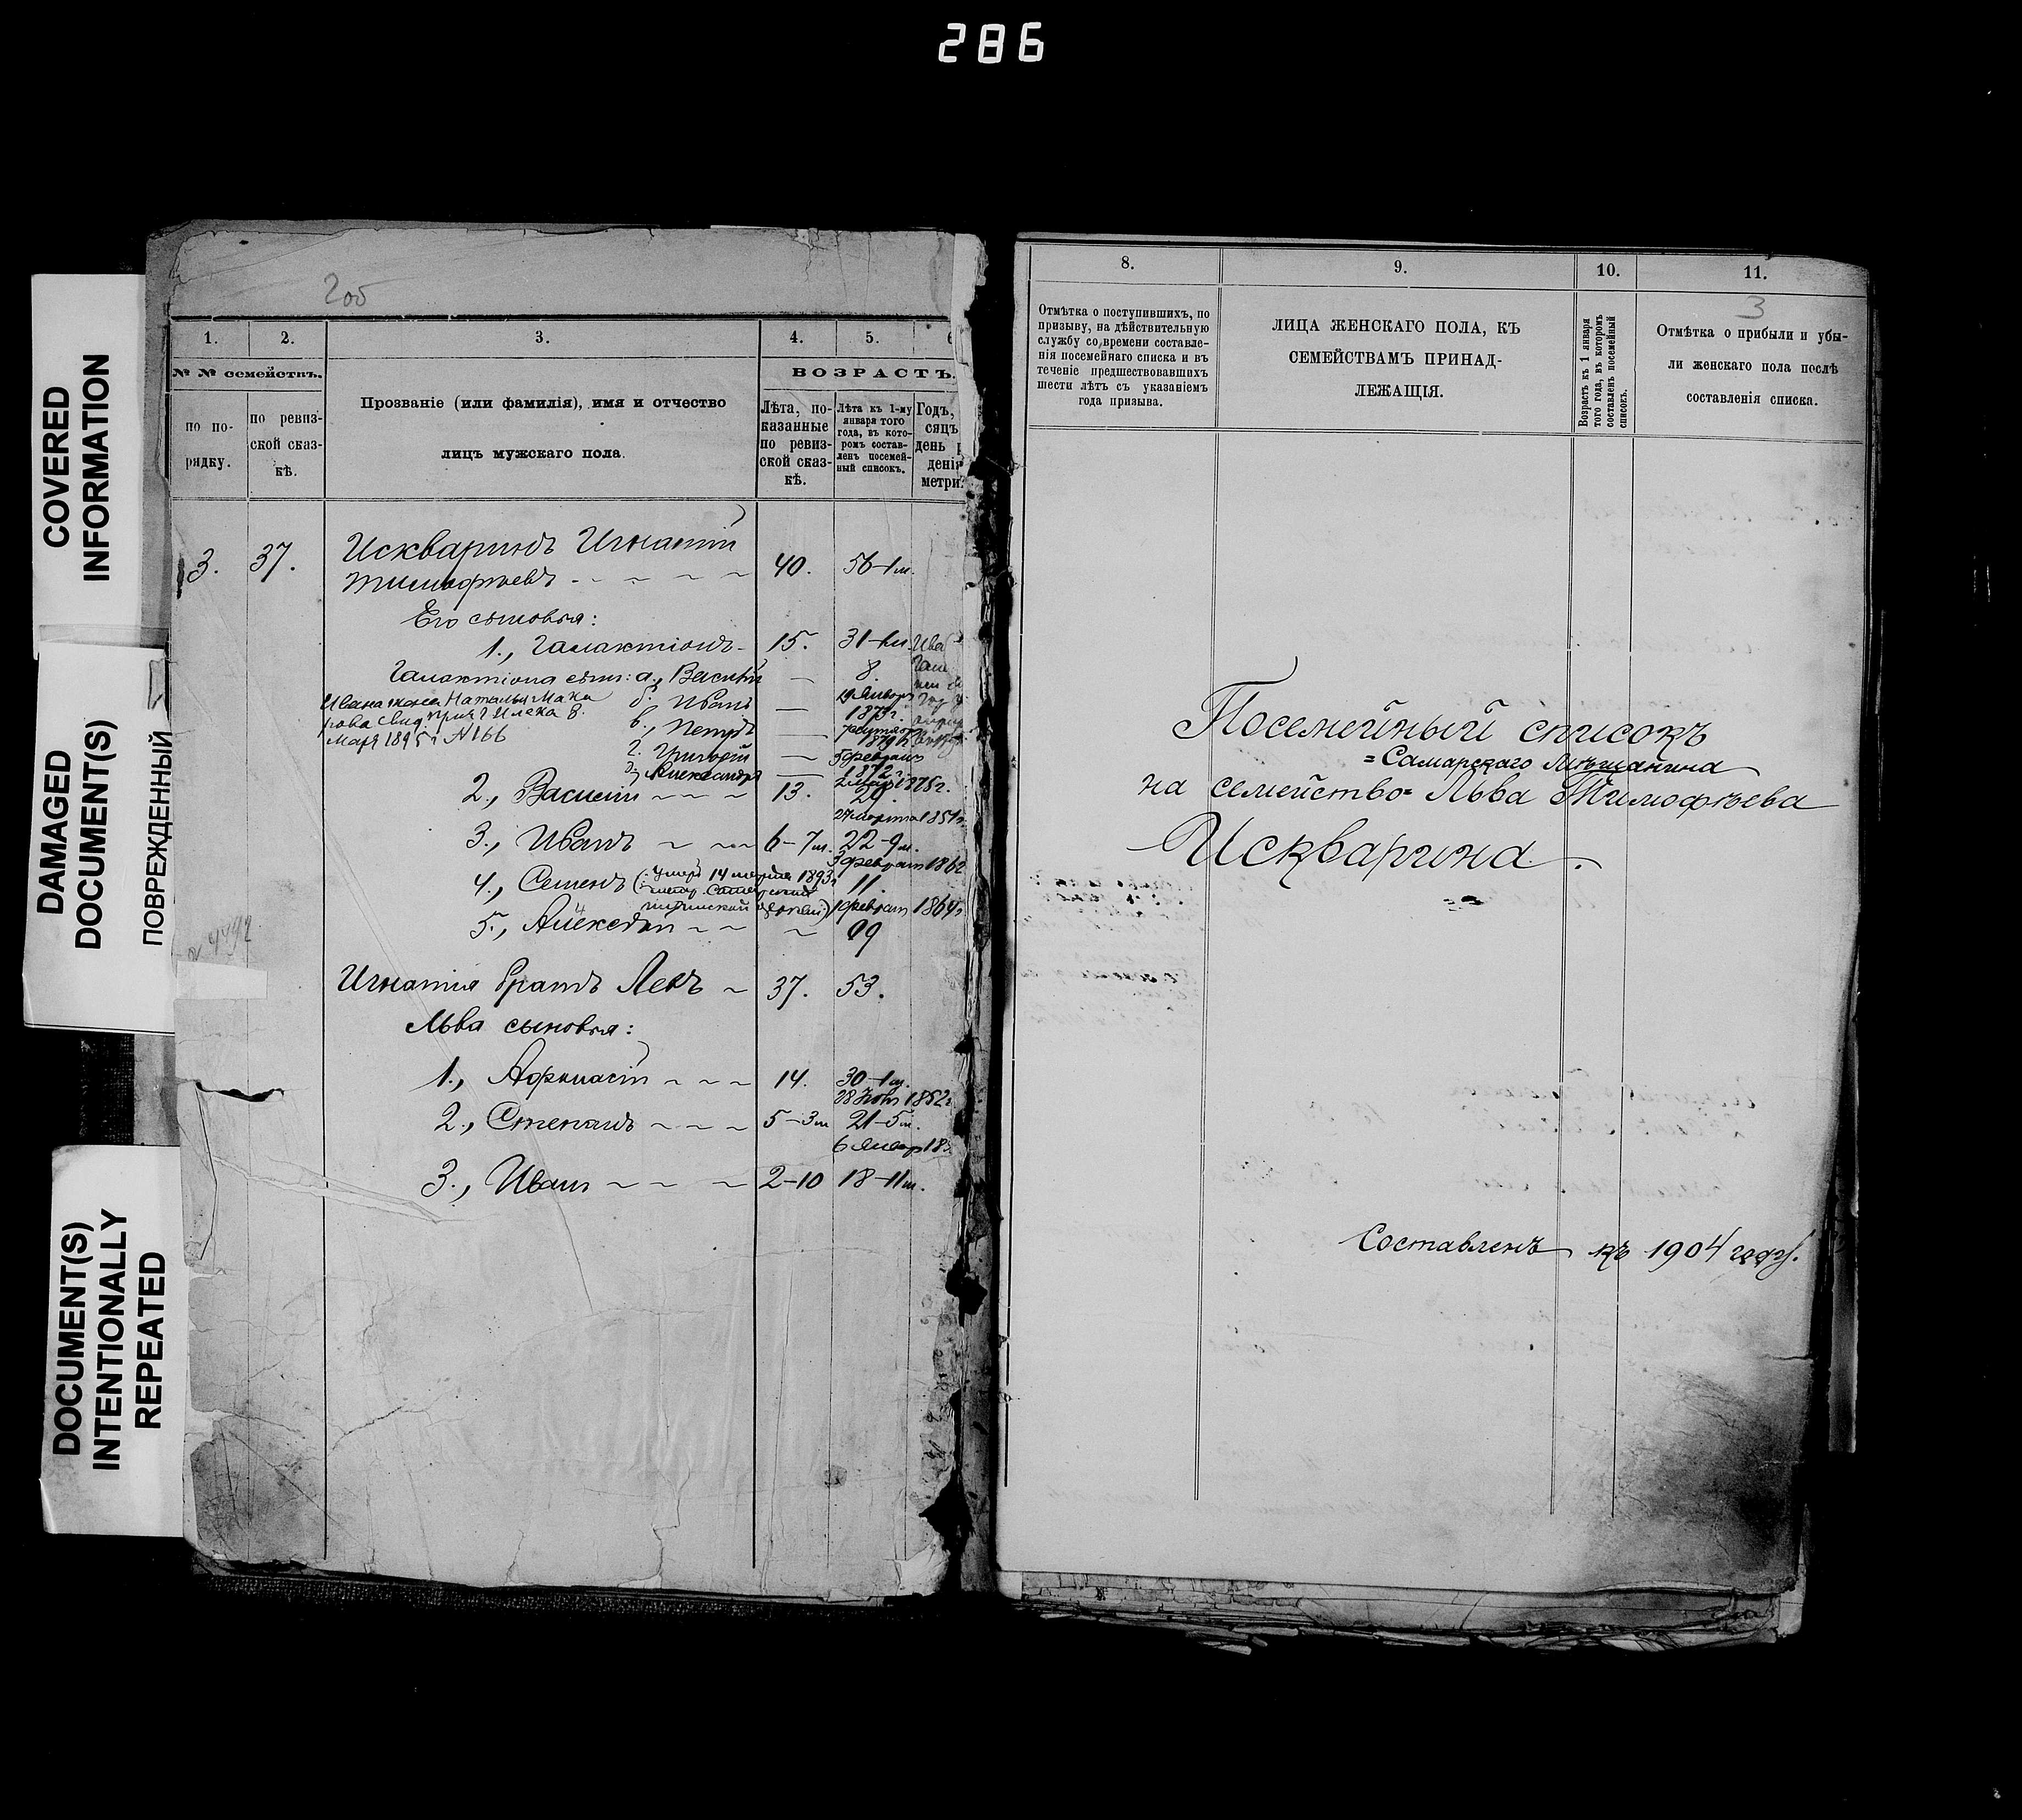 286
COVERED
INFORMATION
DAMAGED
DOCUMENT(S)
ПОВРЕЖДЕННЫЙ
DOCUMENT(S)
INTENTIONALLY
REPEATED
2об
1. 2. 3. 4. 5. 6
№ № семействъ.
по по-
рядку.
по ревиз-
ской сказ-
кѣ.
Прозваніе (или фамилія), имя и отчество
лицъ мужскаго пола.
ВОЗРАСТЪ.
Лѣта, по-
казанные
по ревиз-
ской сказ-
кѣ.
Лѣта къ 1-му
января того
года, въ кото-
ромъ состав-
ленъ посемей-
ный списокъ.
Годъ,
сяцъ
день
денія
метри
3. 37. Искваринъ Игнатій
Тимофѣевъ 40. 56-1м.
Его сыновья:
1., Галактіонъ 15. 31-1м.
Галактіона сын: а., Василій — 8.
Ивана жена Наталья Мака
рова свид. прич. г Илека 8.
Мар 1895 г № 166
б. Иванъ — 19 Январ
187 г.
в., Петръ —
г. Григорій — 5 феврал
д., Александръ — 1875г.
2., Василій 13. 29.
27 марта 1851г.
3., Иванъ 6-7м. 22-9м.
3 феврал 1862
4., Семенъ (: умеръ 14 марта 1893г 11.
церкви) 1 феврал 1864г
5., Алексѣй 09
4492
Игнатія братъ Левъ 37. 53.
Льва сыновья:
1., Афонасій 14. 30-1м.
28 1852г
2., Степанъ 5-3м 21-5м.
6 Январ 185
3., Иванъ 2-10 18-11м.
8. 9. 10. 11.
3
Отмѣтка о поступившихъ, по
призыву, на дѣйствительную
службу со времени составле-
нія посемейнаго списка и въ
теченіе предшествовавшихъ
шести лѣтъ съ указаніемъ
года призыва.
ЛИЦА ЖЕНСКАГО ПОЛА, КЪ
СЕМЕЙСТВАМЪ ПРИНАД-
ЛЕЖАЩІЯ.
Возрастъ къ 1 января
того года, въ которомъ
составленъ посемейный
списокъ.
Отмѣтка о прибыли и убы-
ли женскаго пола послѣ
составленія списка.
Посемейный списокъ
=Самарскаго мѣщанина
на семейство= Льва Тимофѣева
Искварина.
Составленъ къ 1904 году.